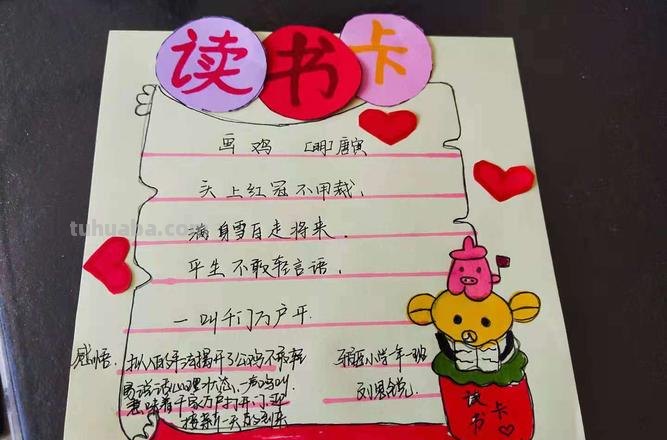 读书卡
画鸡 [明]唐寅
头上红冠不用裁,
满身雪白走将来.
平生不敢轻言语,
一叫千门万户开.
tuhuaba.com
感悟.
拟人的手法揭开了公鸡不
易说话心理状态,一声鸣叫
意味着千家万户打开门,
接新一天的到来
小学一年一班
读书卡